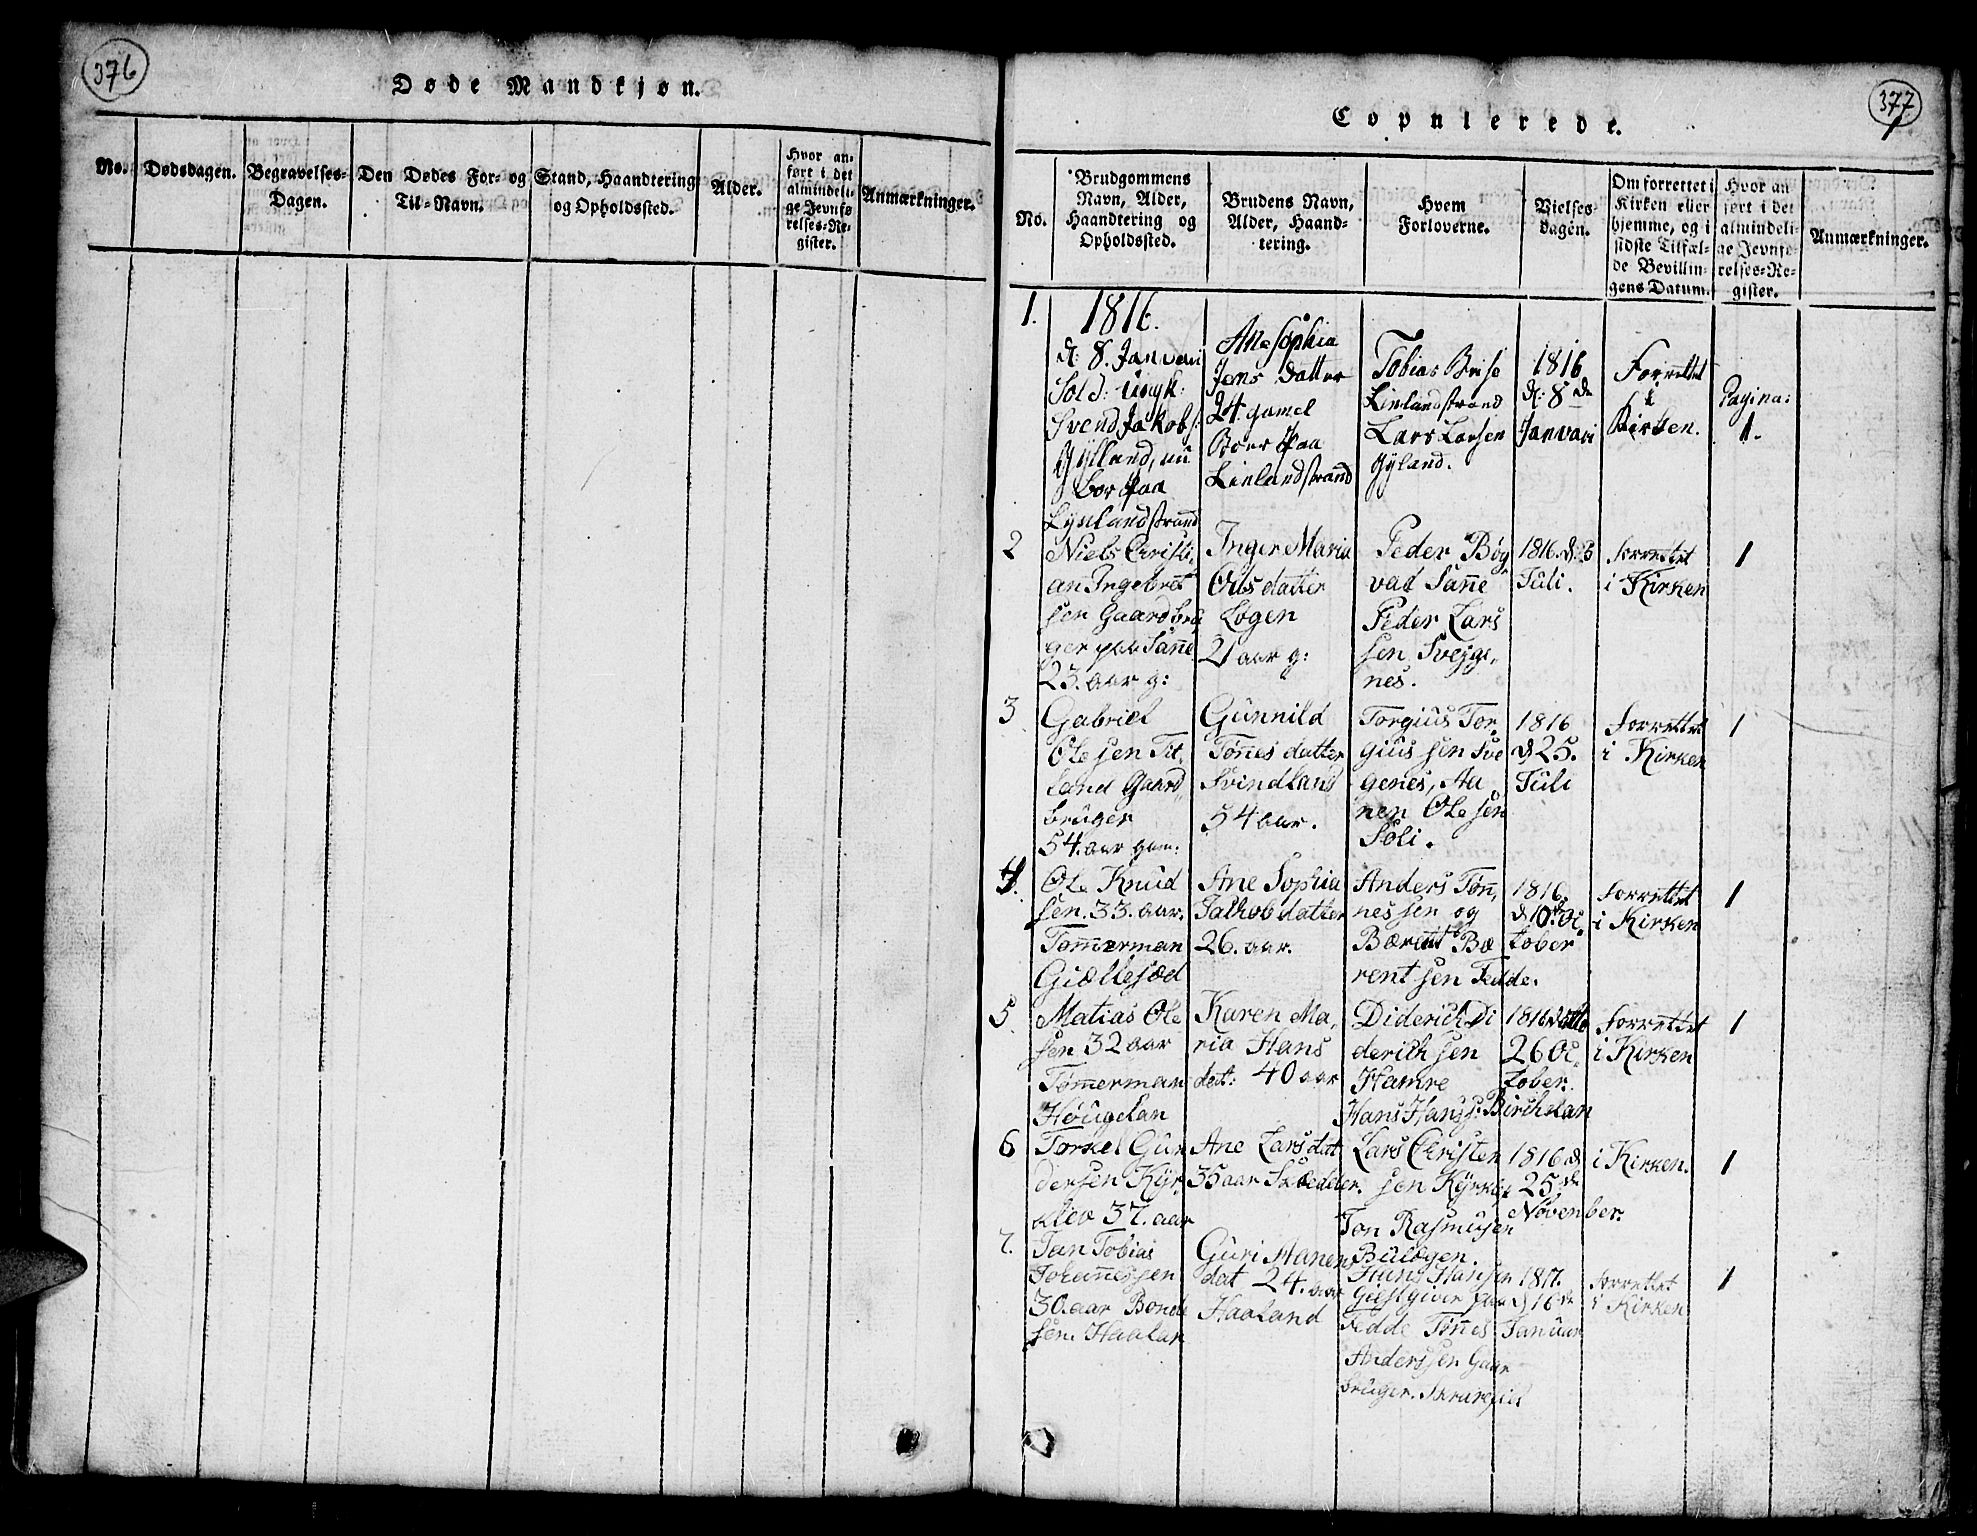 376
Døde Mandkjøn.
No.
Dødsdagen.
Begravelses-
Dagen.
Den Dødes For- og
Til-Navn.
Stand, Haandtering
og Opholdssted.
Alder.
Hvor an-
ført i det
almindeli-
ge Jevnfø
relses-Re-
gister.
Anmærkninger.
377
1
Copulerede.
No.
Brudgommens
Navn, Alder,
Haandtering og
Opholdssted.
Brudens Navn,
Alder, Haand-
tering.
Hvem
Forloverne.
Vielses-
dagen.
Om forrettet i
Kirken eller
hjemme, og i
sidste Tilfæl-
de Bevillin-
gens Datum.
Hvor an
ført i det
almindeli-
ge Jevnfø-
relses-Re-
gister.
Anmærkninger.
1.
1816.
d: 8. Januari
Sold:
Svend Jakobs:
Gylland, nu
bor paa
Lynlandstrand
Ane Sophia
Jens datter
24 gamel
Boer paa
Linlandstrand
Tobias Brise
Linlandstrand
Lars Larsen
Gyland.
1816
d: 8 de
Januari
Forrettet
i
Kirken.
Pagina:
1.
2
Niels Christi,
an Ingebret
sen Gaardbru
ger paa Sanne
23. aar g:
Inger Maria
Olis datter
Logen
21 aar g:
Peder Bøg
vad Sanne
Peder Lars
sen Svegge,
nes.
1816. d: 3
Juli.
forrettet
i Kirken
1
3
Gabriel
Ole sen Tit,
land Gaard,
bruger
54. aar gam:
Gunnild
Tønes datter
Svindland
54 aar.
Torgius Tor,
gius sen Sve
genes, Aa
nen Ole sen
Soli.
1816
d 25.
Juli
forrettet
i Kirken
1
4.
Ole Knud
sen. 33. aar.
Tømmerman
Giællesæd
Ane Sophia
Jakob datter
26. aar.
Anders Tøn,
nes sen og
Bærent Bæ
rent sen Fedde.
1816.
d 10. Oc,
tober
forrettet
i Kirken
1
5.
Matias Ole
sen 32 aar
Tømmerman
Høugelan
Karen Ma,
ria Hans
dat: 40 aar
Diderich Di
derich sen
Hamre
Hans Hans s: Birchelan
1816
26 Oc,
tober.
forrettet
i Kirken
1
6
Torkel Gun
dersen Kyr,
klev 37. aar
Ane Larsdat
35 aar
Lars Christen
sen Kyrklev
Jon Rasmusen
1816 d
25 de
November.
i Kirken.
1
7.
Jan Tobias
Johannessen
30. aar Bonde
sen. Haalan
Guri Aanens
dat 24. aar
Haaland
Hans Hansen
Giestgiver paa
Fedde Tønes
Anderssen Gaar
bruger.
1817.
d 16 de
Januar
forrettet
i Kirken
1